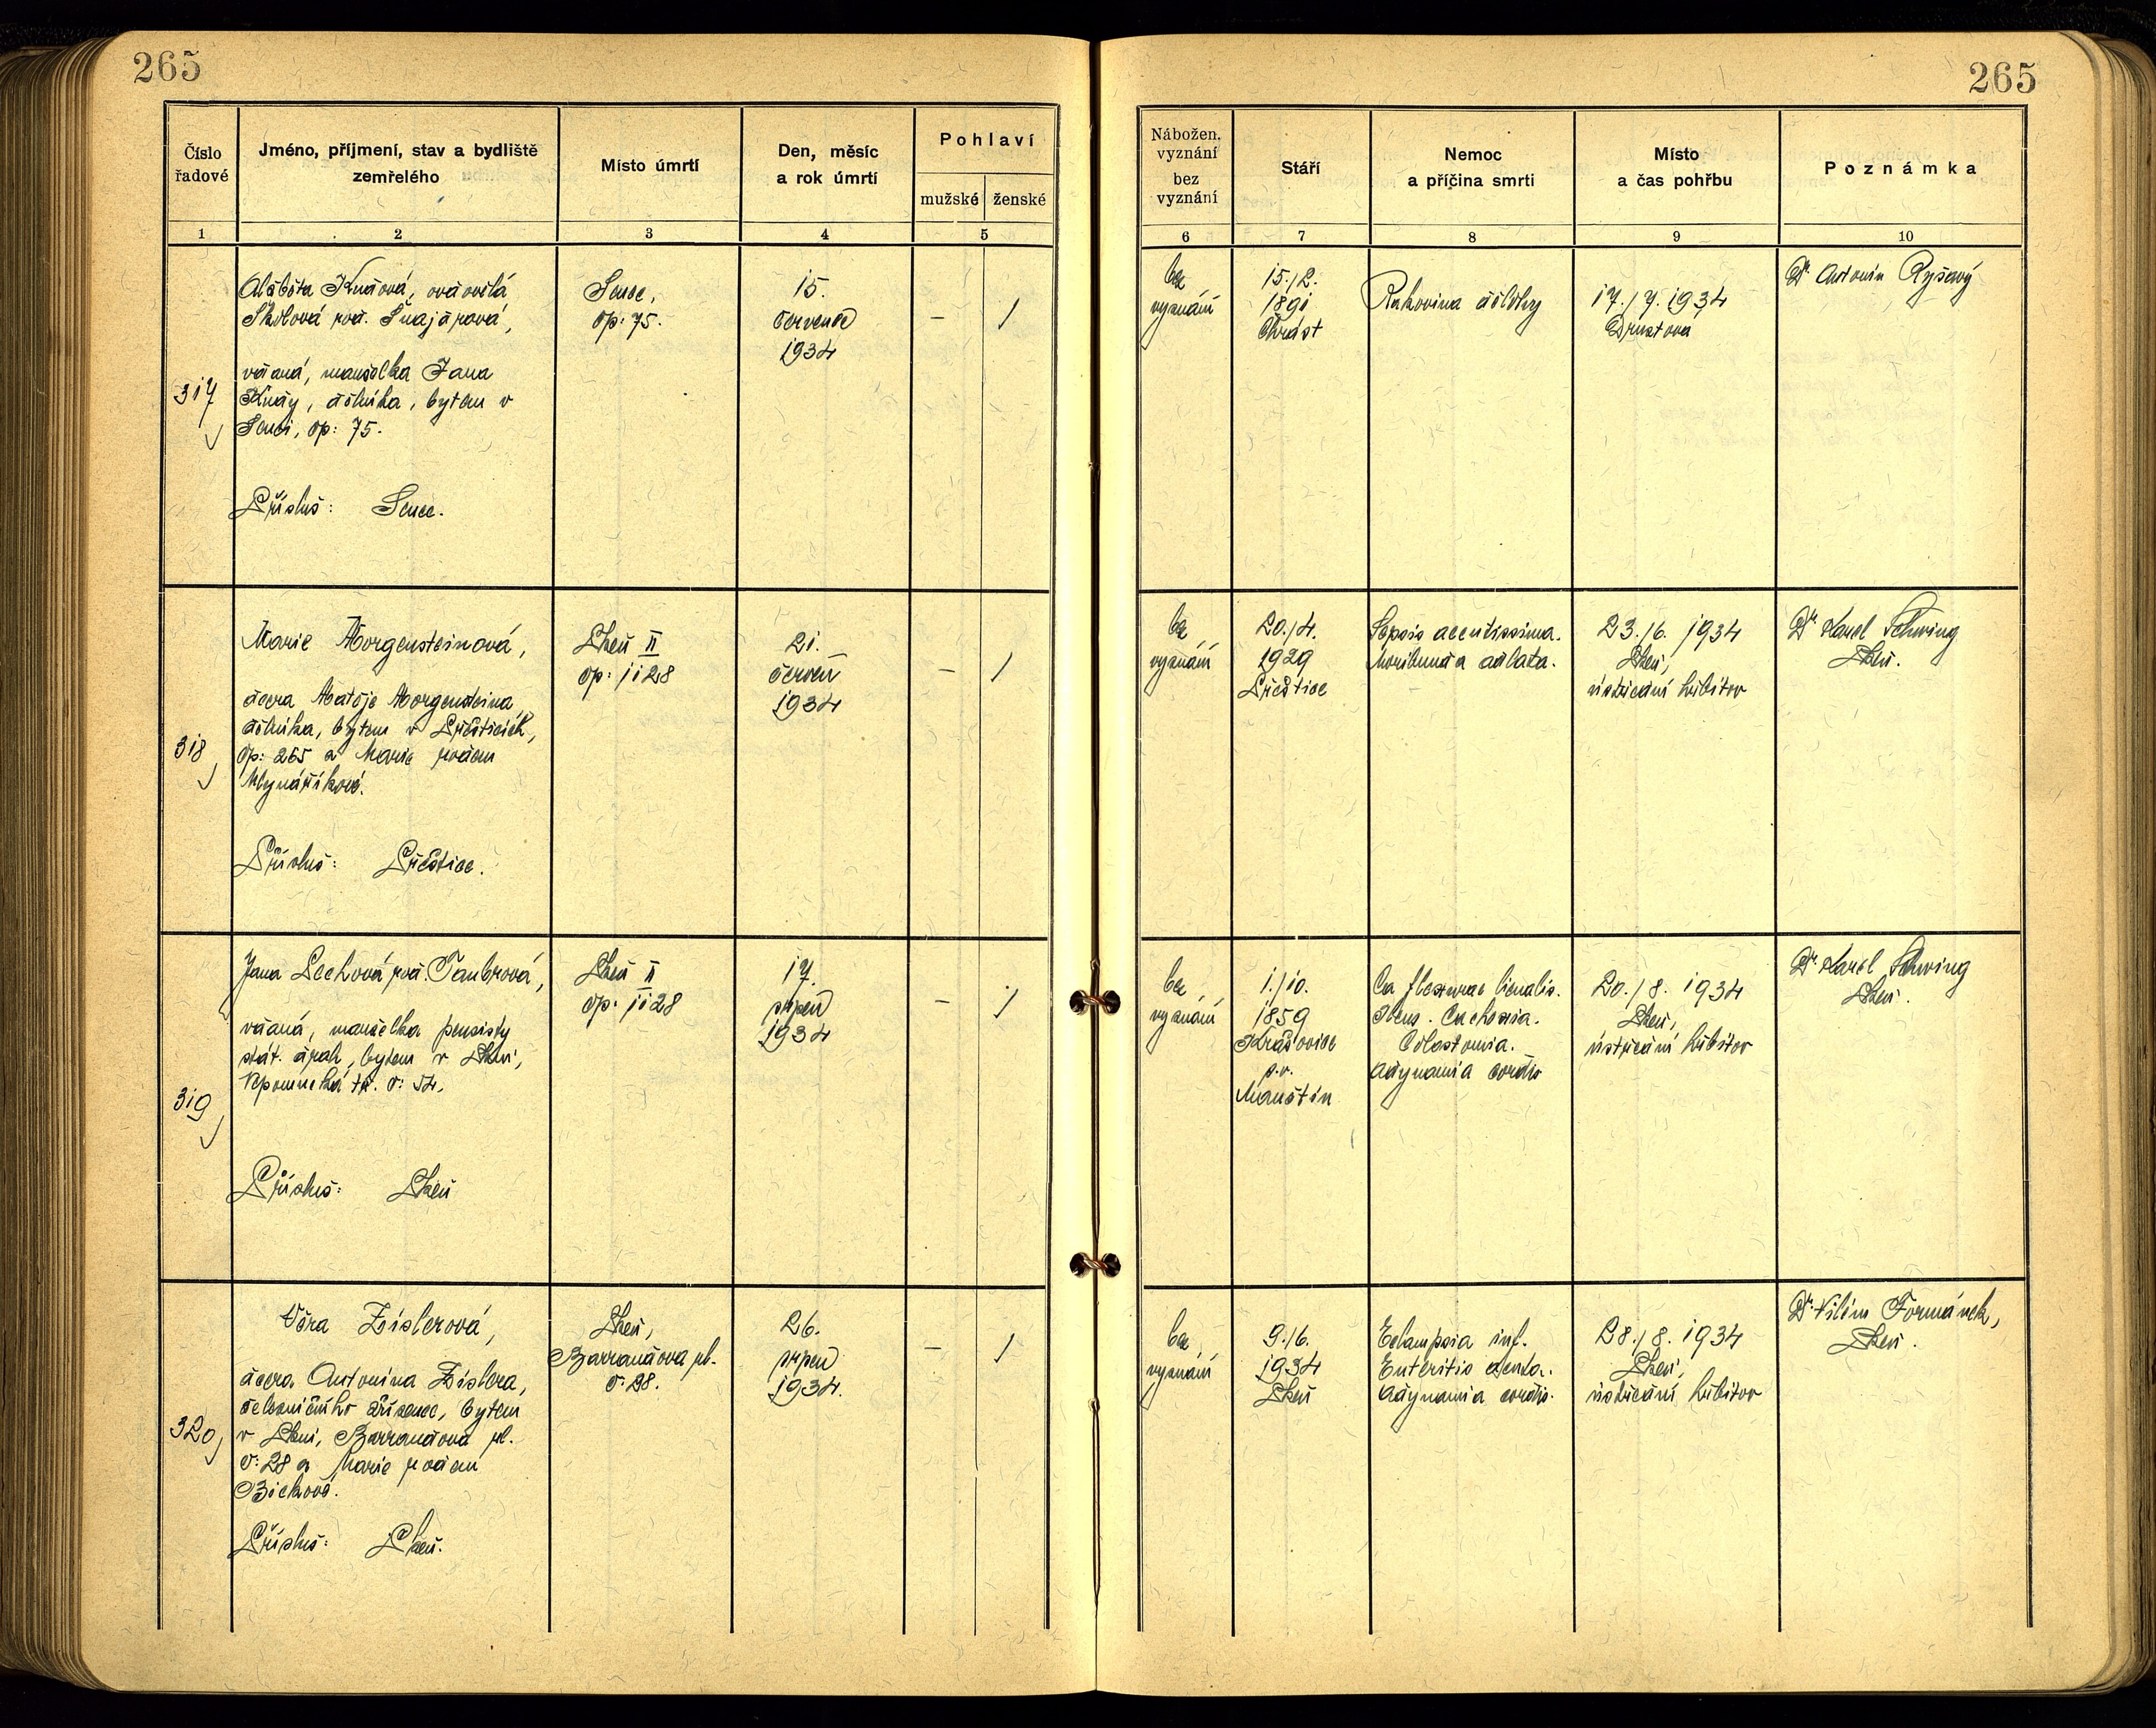 265
265
Číslo řadové
Jméno, příjmení, stav a bydliště zemřelého
Místo úmrtí
Den, měsíc a rok úmrtí
Pohlaví
mužské
ženské
1
2
3
4
5
Nábožen. vyznání
bez vyznání
Stáří
Nemoc a příčina smrti
Místo a čas pohřbu
Poznámka
6
7
8
9
10
317
Alžběta ovdovělá
Školová roz. Šnajdrová,
vdaná, manželka Jana
dělníka, bytem v
Senci, čp: 75.
Přísluš: Senec.
Senec,
čp: 75.
15.
července
1934
–
/
bez
vyznání
15./2.
1891
Chrást
Rakovina dělohy
17./7. 1934
Druztová
Dr Antonín Ryšavý
318
Marie Morgensteinová,
dcera Matěje Morgensteina,
dělníka, bytem v Přešticích,
čp: 265 a Marie rodem
Mlynáříkové.
Přísluš: Přeštice.
Plzeň II
čp: 1128
21.
červen
1934
–
/
bez
vyznání
20./4.
1929
Přeštice
Sepsis acutissima.
Moribunda adlata.
23./6. 1934
Plzeň,
ústřední hřbitov
Dr Karel Schwing
Plzeň.
319
Jana Pechová roz. Taubrová,
vdaná, manželka pensisty
stát. drah, bytem v Plzni,
Nepomucká tř. č: 54.
Přísluš: Plzeň
Plzeň II
čp: 1128
17.
srpen
1934
–
/
bez
vyznání
1./10.
1859
Krašovice
p.v.
Manětín
Ca flexurae lienalis.
Ileus. Cachexia.
Colostomia.
Adynamia cordis
20./8. 1934
Plzeň,
ústřední hřbitov
Dr Karel Schwing
Plzeň.
320
Věra Zíslerová,
dcera Antonína Zíslera,
železničního zřízence, bytem
v Plzni, Barrandova ul.
č: 28 a Marie rodem
Přísluš: Plzeň.
Plzeň,
Barrandova ul.
č: 28.
26.
srpen
1934.
–
/
bez
vyznání
9./6.
1934
Plzeň
Eclampsia inf.
Enteritis acuta.
Adynamia cordis.
28./8. 1934
Plzeň,
ústřední hřbitov
Dr Vilém Formánek,
Plzeň.